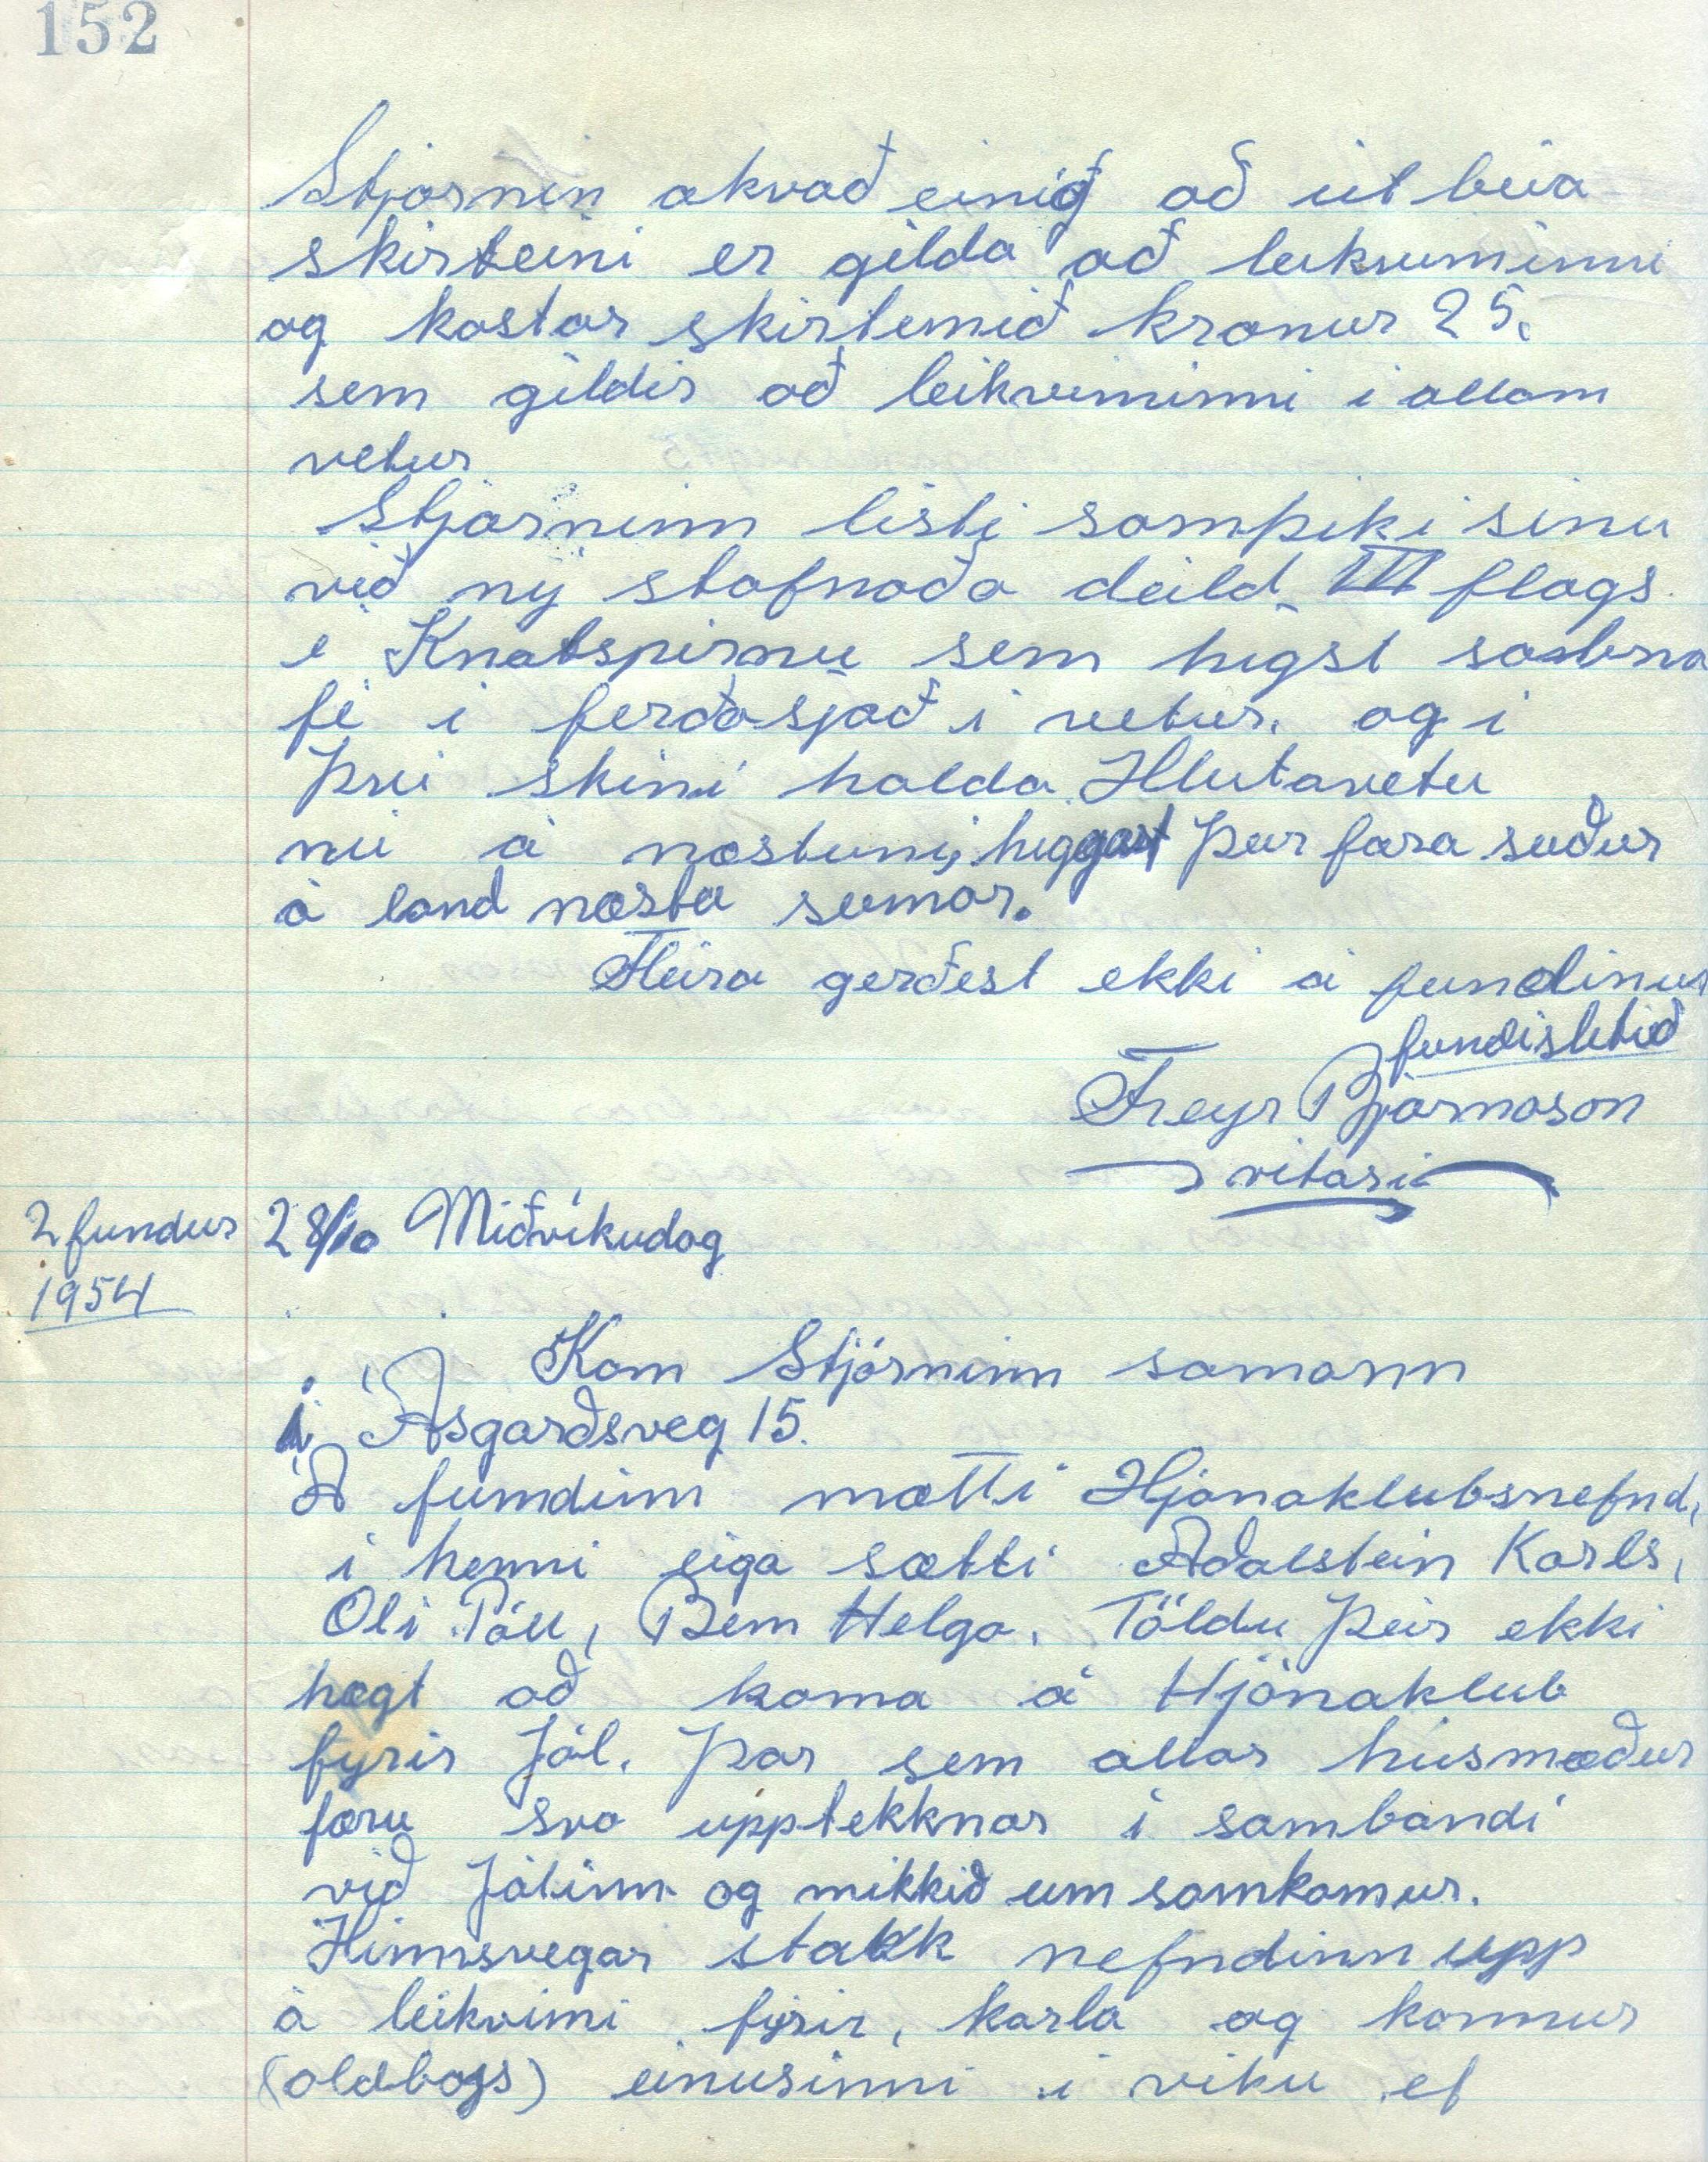 152
Stjornin akvað einig að út búa
skirteini er gilda að leikviminni
og kostar skirteinið kronur 25.
sem gildir að leikviminni i allan
vetur
Stjorninn listi sampiki sinu
við ný stofnaða deild III flags
i Knatspirnu sem higst safna
fé i ferðasjað i vetur. og i
því skini halda Hlutavetu
nú á næstuni, higgast þeir fara suður
á land næsta sumar.
Fleira gerðest ekki á fundinum
fundislitið
Freyr Bjarnason
ritari
2 fundur 28/10 Miðvikudag
1954
Kom Stjórninn samann
í Ásgarðsveg 15.
Á fundinn mætti Hjónaklubsnefnd,
i henni eiga sætti Aðalstein Karls,
Oli Páll, Benn Helga. Töldu þeir ekki
hægt að koma á Hjónaklub
fyrir Jól. Þar sem allar húsmæður
færu svo upptekknar i sambandi
við Jólinn og mikkið um samkomur.
Hinnsvegar stakk nefndinn upp
á leikvimi fyrir, karla og konnur
(oldboys) einusinni i viku ef